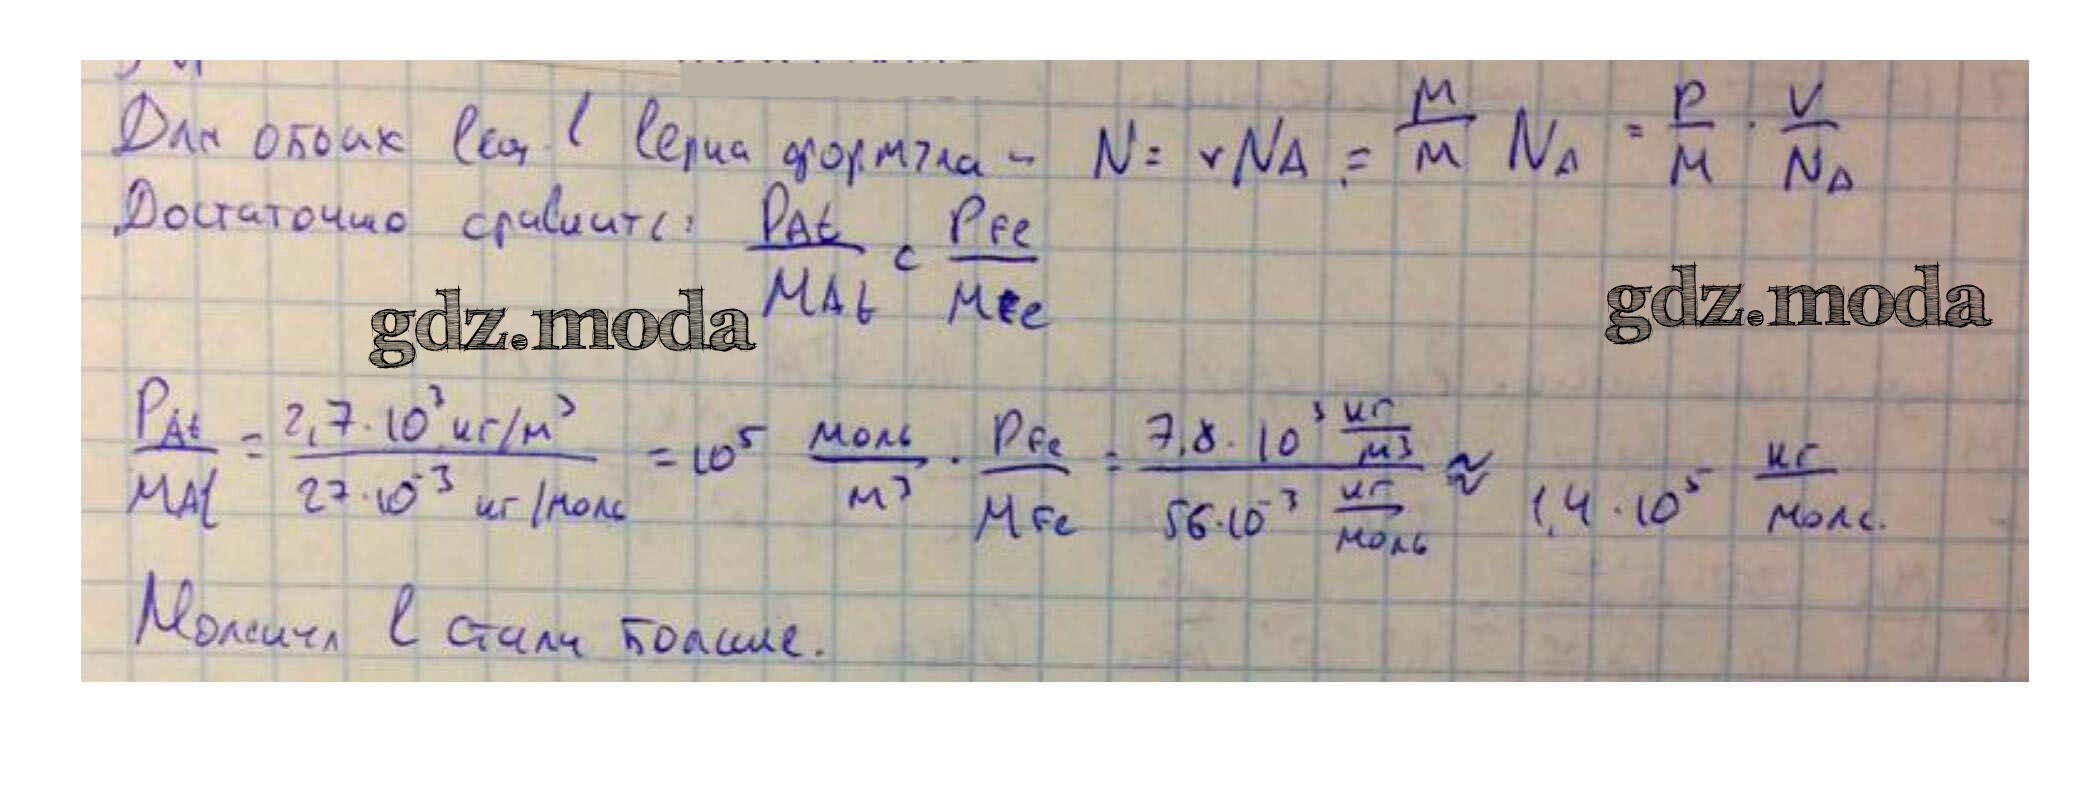 Для обоих верна формула - N = νNA = m/M NA = ρ/M · V/NA
Достаточно сравнить: ρAl/MAl с ρFe/MFe
gdz.moda gdz.moda
ρAl/MAl = 2,7·10³ кг/м³ / 27·10⁻³ кг/моль = 10⁵ моль/м³ · ρFe/MFe = 7,8·10³ кг/м³ / 56·10⁻³ кг/моль ≈ 1,4·10⁵ кг/моль.
Молекул в стали больше.